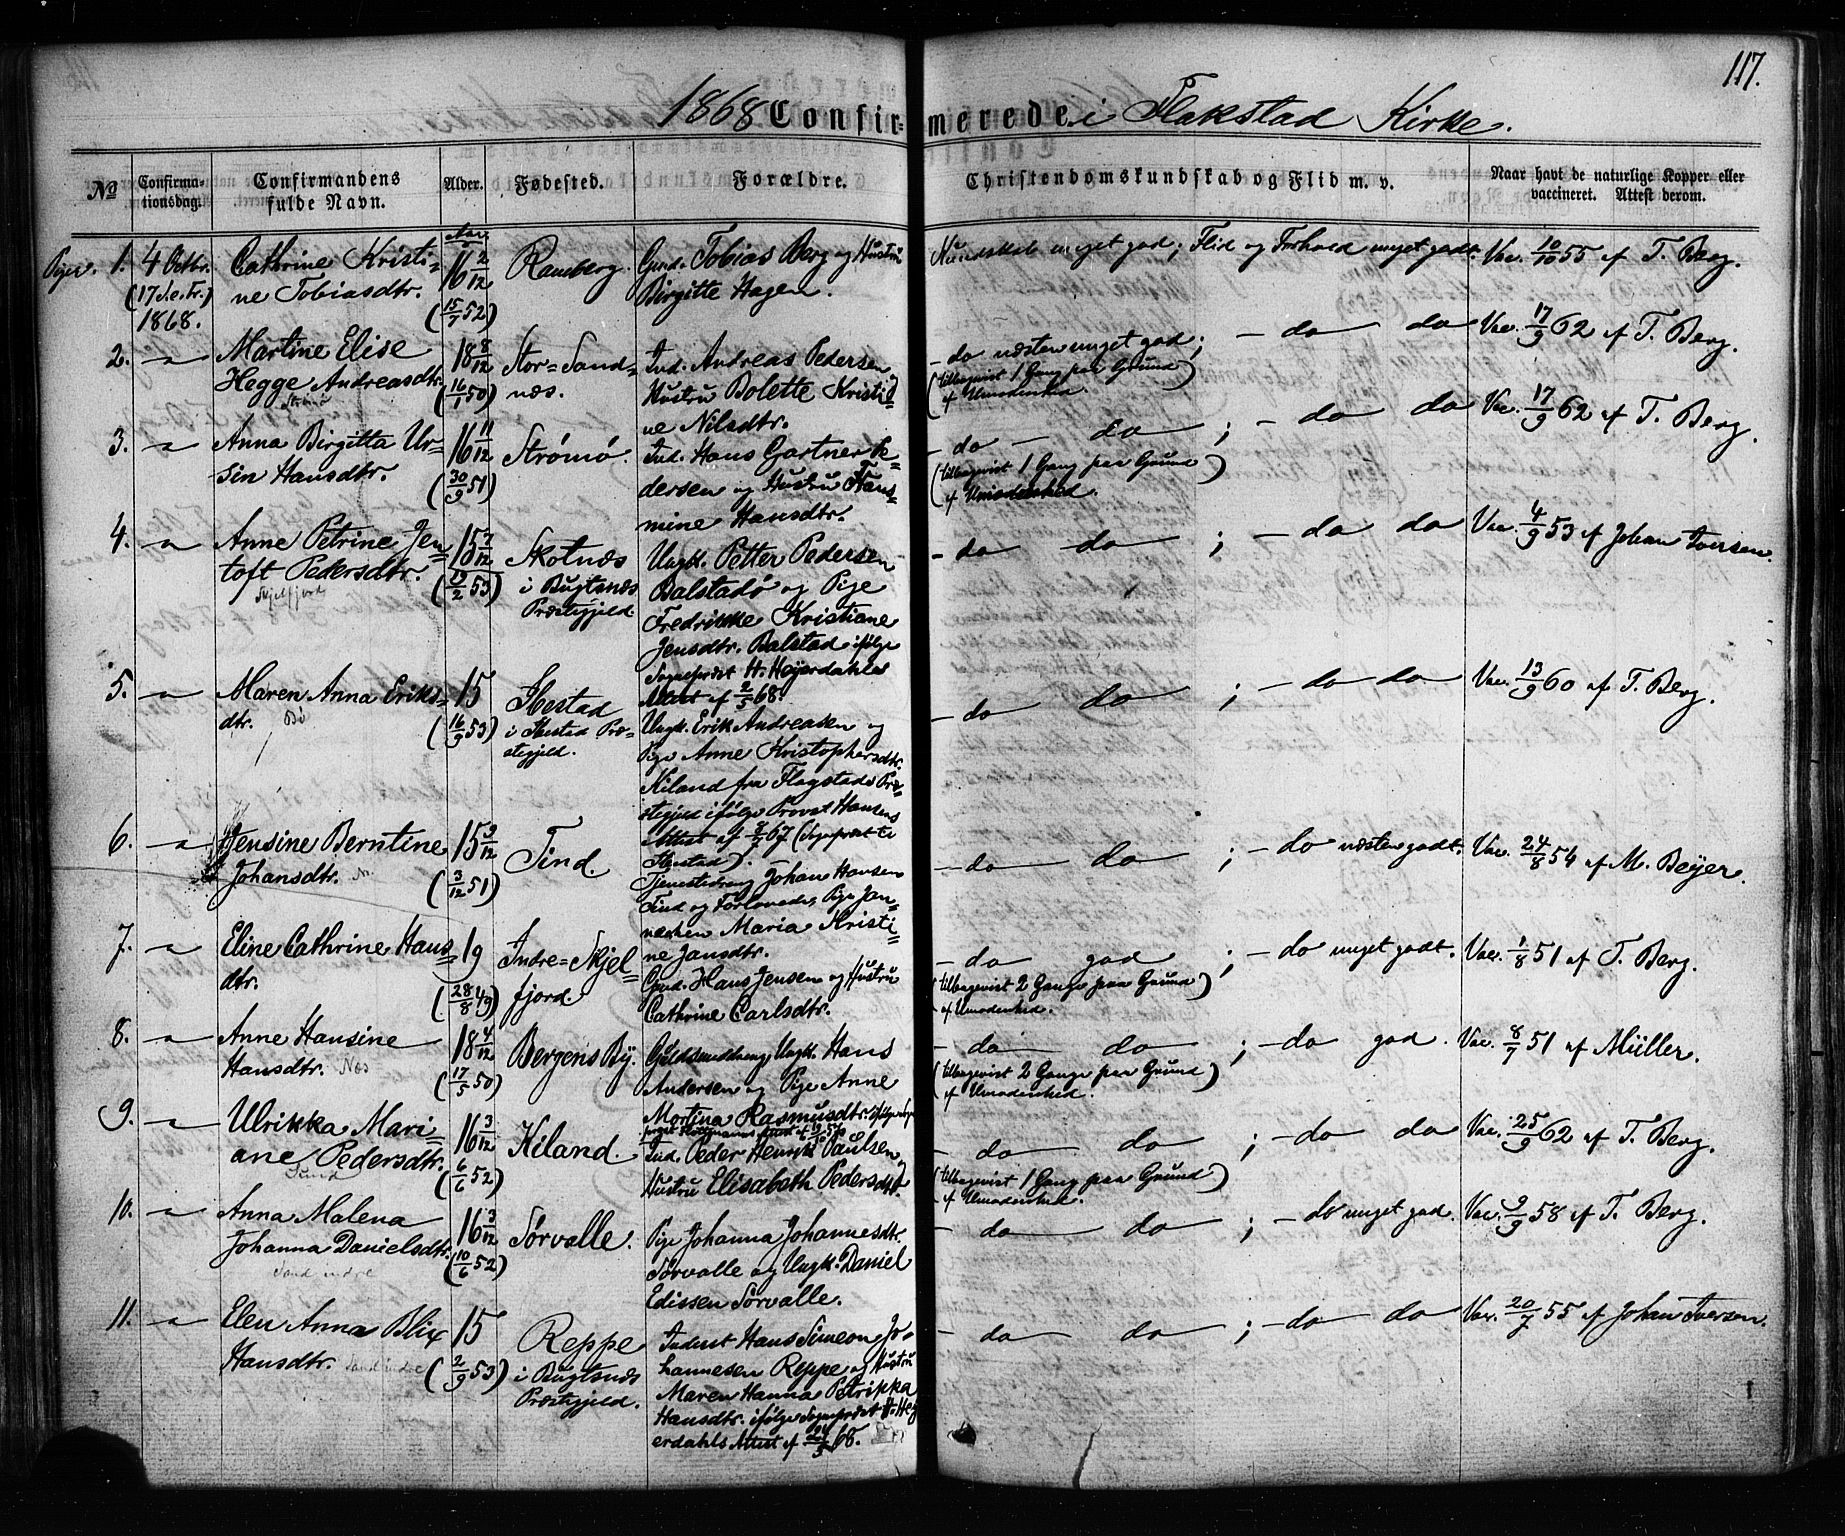 117.
1868 Confirmerede i Flakstad Kirke.
No
Confirmationsdag.
Confirmandens fulde Navn.
Alder.
Fødested.
Forældre.
Christendomskundskab og Flid m. v.
Naar havt de naturlige Kopper eller vaccineret. Attest derom.
Piger. 1. 4 Octbr. (17 S.e.Tr.) 1868.
Cathrine Kristi-
ne Tobiasdtr.
Aar
16 2/12
(15/7 52)
Ramberg.
Gmd. Tobias Berg og Hustru
Birgitte Hagen.
Kundskab meget god; Flid og Forhold meget godt.
Vac. 10/10 55 af T. Berg.
2. —"—
Martine Elise
Hegge Andreasdtr.
Strømø
18 8/12
(16/1 50)
Stor=Sand=
næs.
Ind. Andreas Pedersen
Hustru Bolette Kristi=
ne Nilsdtr.
— do næsten meget god; — do do
(tilbagevist 1 Gang paa Grund
af Umodenhed.)
Vac. 17/9 62 af T. Berg.
3. —"—
Anna Birgitta Ur-
sin Hansdtr.
16 11/12
(30/9 51)
Strømø.
Ind. Hans Gartner Pe-
dersen og Hustru Hans-
mine Hansdtr.
— do — do ; — do do
(tilbagevist 1 Gang paa Grund
af Umodenhed.)
Vac. 17/9 62 af T. Berg.
4. —"—
Anne Petrine Jen-
toft Pedersdtr.
Skjelfjord
15 7/12
(19/2 53)
Skotnæs
i Bugtsnæs
Præstegjeld.
Ungk. Petter Pedersen
Balstadø og Pige
Fredrikke Kristiane
Jensdtr. Balstad ifølge
Sognepræst H. Hejerdahls
Attest af 2/5 68.
— do do ; — do do
Vac. 4/9 53 af Johan Iversen.
5. —"—
Maren Anna Eriks-
dtr.
Bø
15
(16/9 53)
Ibestad
i Ibestad Præ-
stegjeld.
Ungk. Erik Andreasen og
Pige Anne Kristophersdtr.
Kiland fra Flagstads Præ-
stegjeld ifølge Provst Hansens
Attest af 67 (Sognepræst til
Ibestad).
— do do ; — do do
Vac. 13/9 60 af T. Berg.
6. —"—
Jensine Berntine
Johansdtr.
15 9/12
(3/12 51)
Tind.
Tjenestedreng Johan Hansen
Tind og Forlovede, Pige Jan-
nechen Maria Kristi-
ne Jansdtr.
— do do ; — do næsten godt.
Vac. 24/8 54 af M. Beyer.
7. —"—
Eline Cathrine Hans-
dtr.
19
(28/8 49)
Indre=Skjel-
fjord.
Gmd. Hans Jensen og Hustru
Cathrine Carlsdtr.
— do god ; — do meget godt.
(tilbagevist 2 Gange paa Grund
af Umodenhed.)
Vac. 1/8 51 af T. Berg.
8. —"—
Anne Hansine
Hansdtr. Næs
18 4/12
(17/5 50)
Bergens By.
Guldsmedsvend Ungk. Hans
Andersen og Pige Anne
Martina Rasmusdtr. ifølge Sogne-
— do do ; — do god.
(tilbagevist 2 Gange paa Grund
af Umodenhed.)
Vac. 8/7 51 af Müller.
9. —"—
Ulrikka Mari-
ane Pedersdtr.
Sund
16 3/12
(6/6 52)
Kiland.
Ind. Peder Henrik Paulsen
Hustru Elisabeth Pedersdtr.
— do do ; — do do
(tilbagevist 1 Gang paa Grund
af Umodenhed.)
Vac. 25/9 62 af T. Berg.
10. —"—
Anna Malena
Johanna Danielsdtr.
Sand indre
16 3/12
(10/6 52)
Sørvalle.
Pige Johanna Johannesdtr.
Sørvalle og Ungk. Daniel
Edissen Sørvalle.
— do do ; — do meget god.
Vac. 9/9 58 af T. Berg.
11. —"—
Elen Anna Blix
Hansdtr. Sand indre
15
(2/9 53)
Reppe
i Bugtsnæs
Præstegjeld.
Inderst Hans Simeon Jo-
hannesen Reppe og Hustru
Maren Hanna Petrikka
Hansdtr. ifølge Sognepræst H. Hej
erdahls Attest af 24/3 68.
— do do ; — do — do
Vac. 20/7 55 af Johan Iversen.